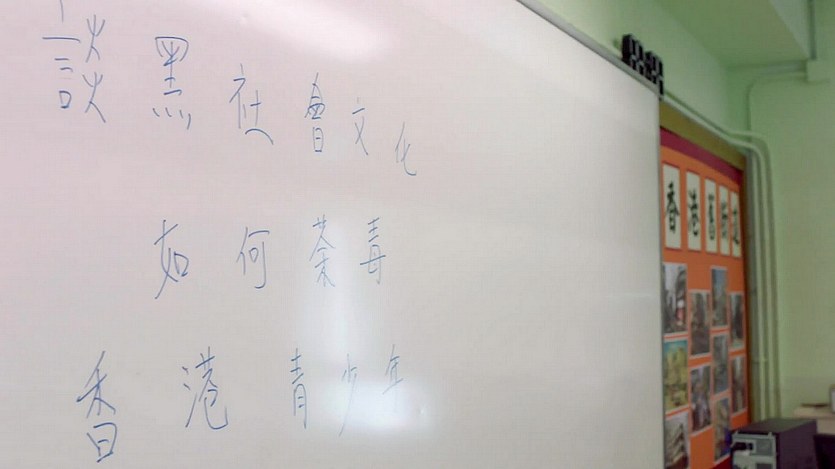 談黑社會文化
如何荼毒
香港青少年
香港舊街道